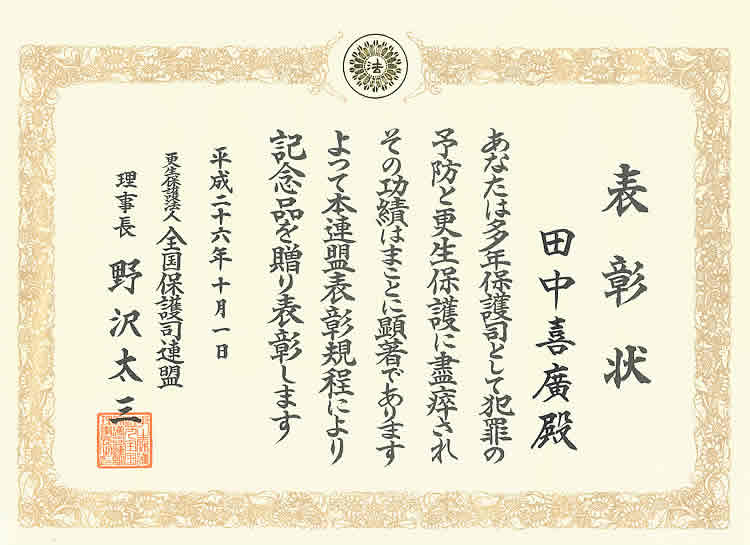 法
表彰状
田中喜廣殿
あなたは多年保護司として犯罪の
予防と更生保護に盡瘁され
その功績はまことに顕著であります
よつて本連盟表彰規程により
記念品を贈り表彰します
平成二十六年十月一日
更生保護法人全国保護司連盟
理事長 野沢太三